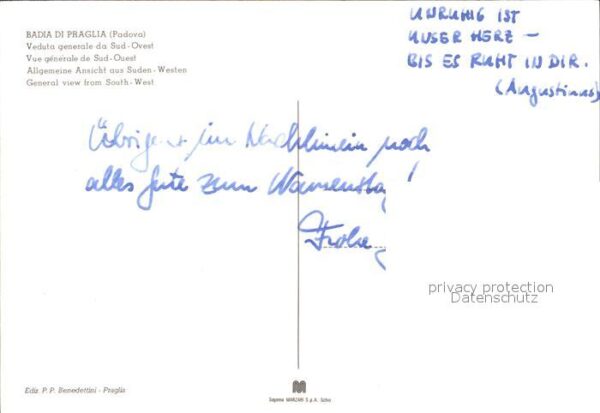 BADIA DI PRAGLIA (Padova)
Veduta generale da Sud-Ovest
Vue générale de Sud-Ouest
Allgemeine Ansicht aus Suden-Westen
General view from South-West
UNRUHIG IST
UNSER HERZ —
BIS ES RUHT IN DIR.
(Augustinus)
Übrigens im Nachhinein noch
alles Gute zum Namenstag!
privacy protection
Datenschutz
Ediz. P. P. Benedettini - Praglia
MANZARI S.p.A.